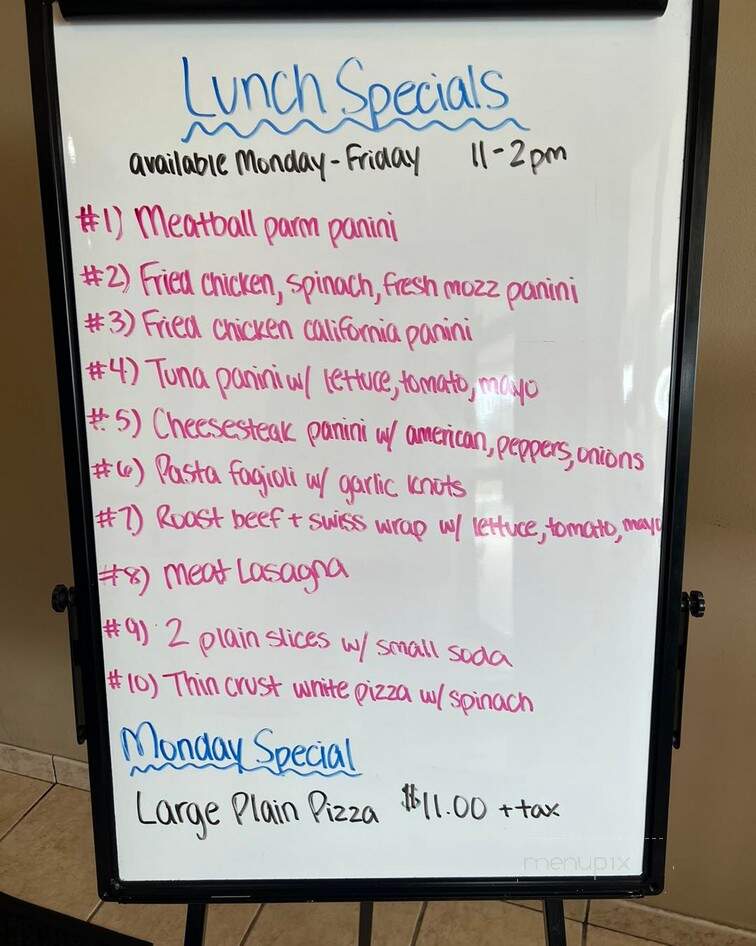 Lunch Specials
available Monday-Friday 11-2pm
#1) Meatball parm panini
#2) Fried chicken, spinach, fresh mozz panini
#3) Fried chicken california panini
#4) Tuna panini w/ lettuce, tomato, mayo
#5) Cheesesteak panini w/ american, peppers, onions
#6) Pasta fagioli w/ garlic knots
#7) Roast beef + swiss wrap w/ lettuce, tomato, mayo
#8) Meat Lasagna
#9) 2 plain slices w/ small soda
#10) Thin crust white pizza w/ spinach
Monday Special
Large Plain Pizza $11.00 + tax
menupix